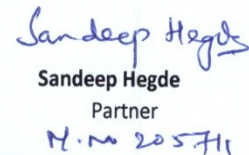 Sandeep Hegde
Sandeep Hegde
Partner
M. No 205711